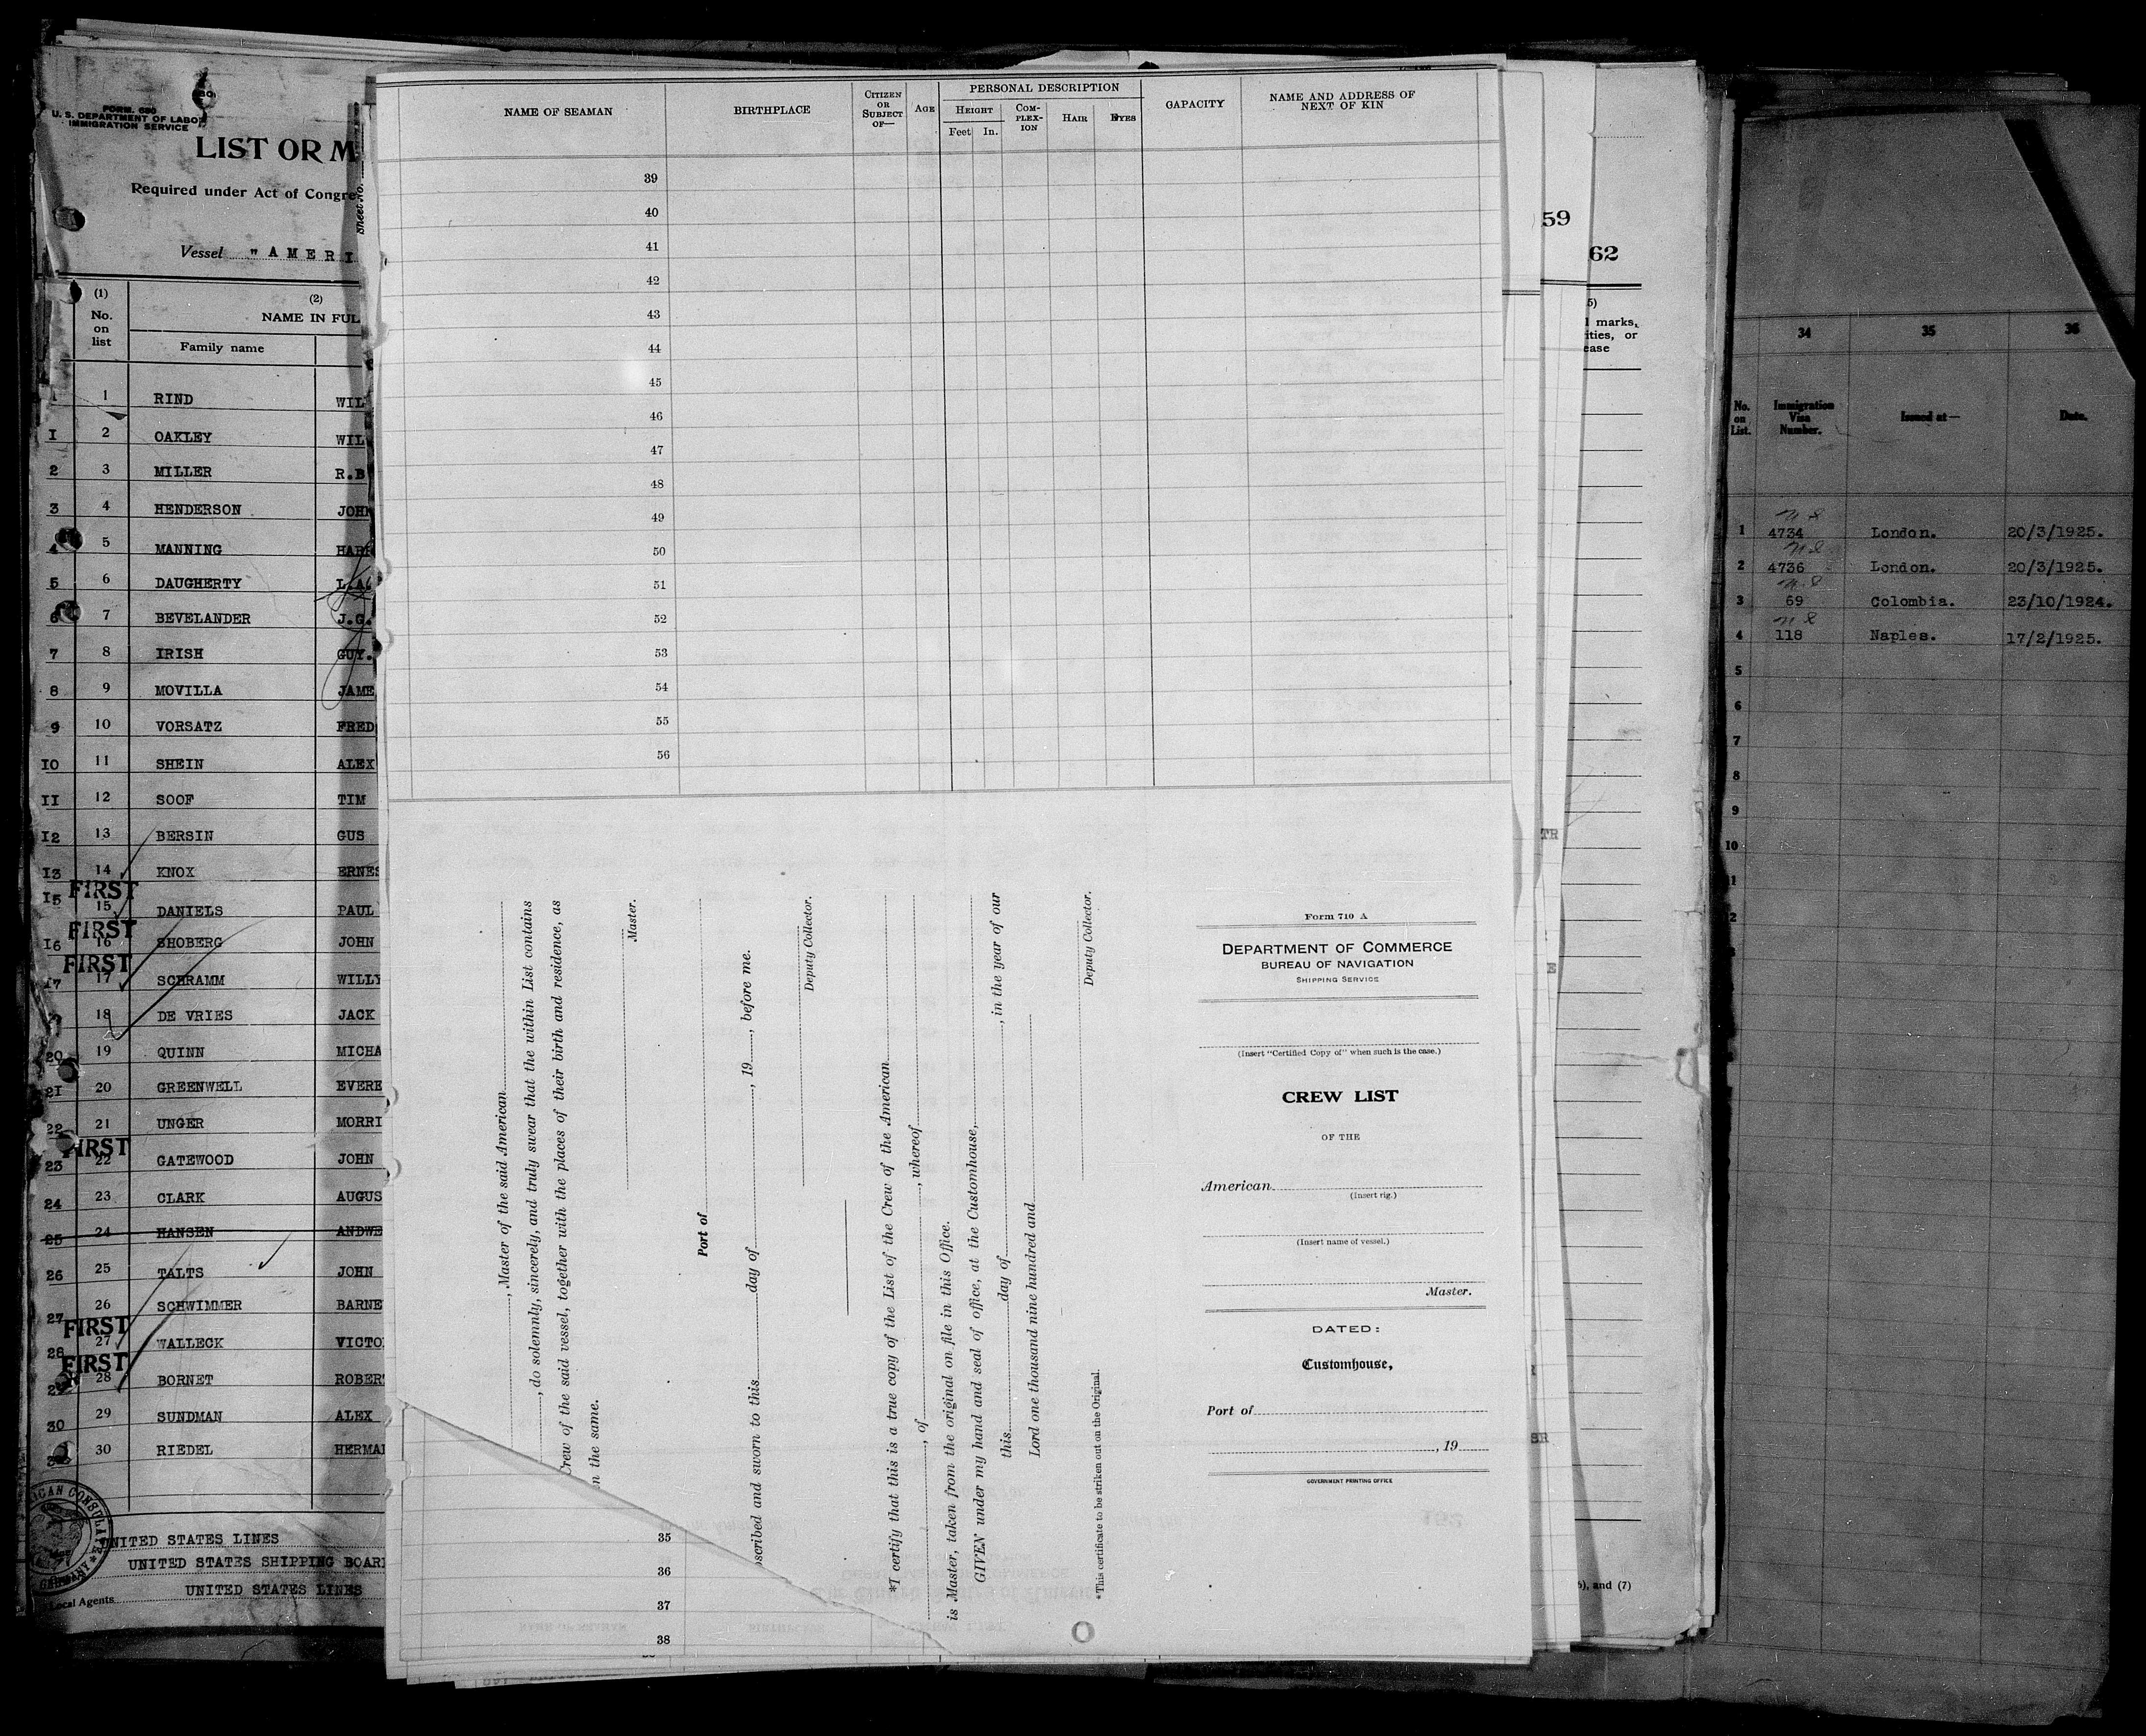 FORM 680
U. S. DEPARTMENT OF LABOR
IMMIGRATION SERVICE
LIST OR M
Required under Act of Congre
Sheet No.
Vessel "AMERI
(1) (2)
No. on list
NAME IN FUL
Family name
1 RIND WIL
1 2 OAKLEY WIL
2 3 MILLER R.B
3 4 HENDERSON JOHN
4 5 MANNING HARR
5 6 DAUGHERTY L.A.
6 7 BEVELANDER J.G.
7 8 IRISH GUY.
8 9 MOVILLA JAME
9 10 VORSATZ FRED
10 11 SHEIN ALEX
11 12 SOOF TIM
12 13 BERSIN GUS
13 14 KNOX ERNES
FIRST
15 15 DANIELS PAUL
FIRST
16 16 SHOBERG JOHN
FIRST
17 17 SCHRAMM WILLY
18 DE VRIES JACK
20 19 QUINN MICHA
21 20 GREENWELL EVERE
22 21 UNGER MORRI
FIRST
23 22 GATEWOOD JOHN
24 23 CLARK AUGUS
25 24 HANSEN ANDWE
26 25 TALTS JOHN
27 26 SCHWIMMER BARNE
FIRST
28 27 WALLECK VICTO
FIRST
29 28 BORNET ROBER
30 29 SUNDMAN ALEX
30 RIEDEL HERMA
ICAN CONSULATE
GERMANY
UNITED STATES LINES
UNITED STATES SHIPPING BOAR
UNITED STATES LINES
Local Agents
NAME OF SEAMAN
BIRTHPLACE
CITIZEN OR SUBJECT OF—
AGE
PERSONAL DESCRIPTION
HEIGHT
Feet In.
COM-PLEX-ION
HAIR
EYES
CAPACITY
NAME AND ADDRESS OF NEXT OF KIN
39
40
41
42
43
44
45
46
47
48
49
50
51
52
53
54
55
56
, Master of the said American
, do solemnly, sincerely, and truly swear that the within List contains
Crew of the said vessel, together with the places of their birth and residence, as
n the same.
Master.
Port of
scribed and sworn to this day of , 19 , before me.
Deputy Collector.
*I certify that this is a true copy of the List of the Crew of the American
, of , whereof
is Master, taken from the original on file in this Office.
GIVEN under my hand and seal of office, at the Customhouse,
this day of , in the year of our
Lord one thousand nine hundred and
Deputy Collector.
*This certificate to be striken out on the Original.
35
36
37
38
Form 710 A
DEPARTMENT OF COMMERCE
BUREAU OF NAVIGATION
SHIPPING SERVICE
(Insert "Certified Copy of" when such is the case.)
CREW LIST
OF THE
American
(Insert rig.)
(Insert name of vessel.)
Master.
DATED:
Customhouse,
Port of
, 19
GOVERNMENT PRINTING OFFICE
59
62
5)
l marks,
ities, or
ease
TR
E
SR
6), and (7)
34 35 36
No. on List.
Immigration Visa Number.
Issued at—
Date.
1 4734 London. 20/3/1925.
2 4736 London. 20/3/1925.
3 69 Colombia. 23/10/1924.
4 118 Naples. 17/2/1925.
5
6
7
8
9
10
1
2